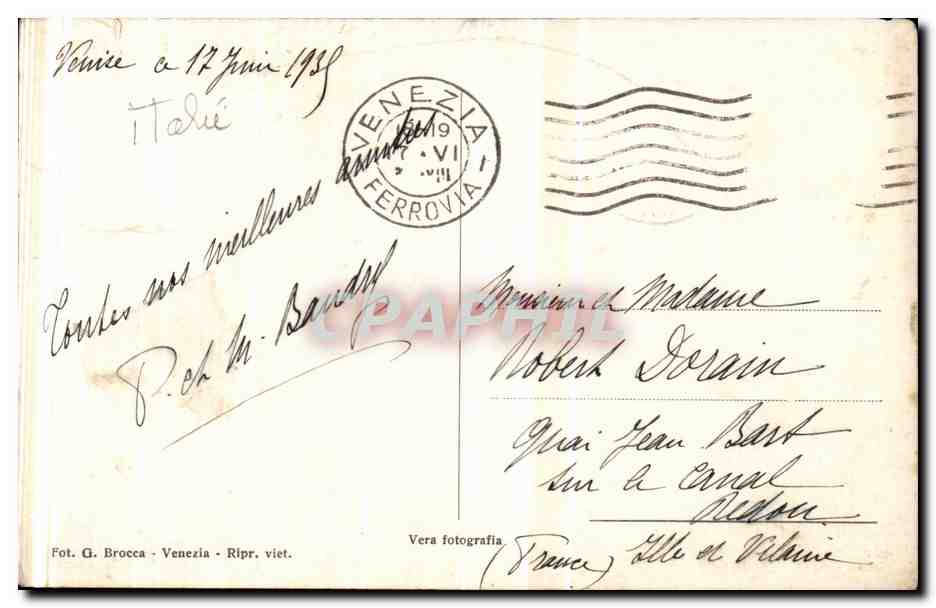 Venise ce 17 Juin 1935
Italie
VENEZIA
19
VI
FERROVIA
Toutes nos meilleures amitiés
P. et M. Baudry
CPAPHIL
Monsieur et Madame
Robert Dorain
Quai Jean Bart
sur le Canal
Redon
(France) Ille et Vilaine
Vera fotografia
Fot. G. Brocca - Venezia - Ripr. viet.